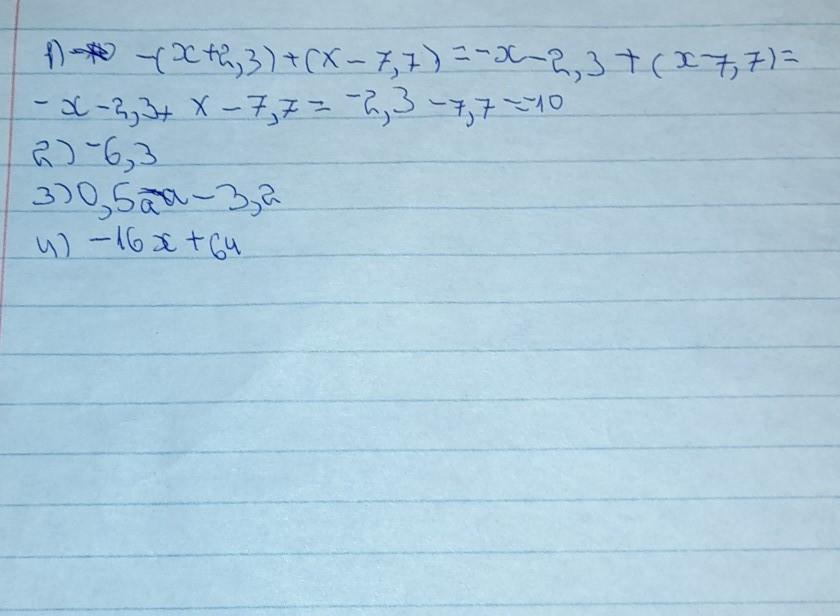 1) -(x+2,3)+(x-7,7)=-x-2,3+(x-7,7)=
-x-2,3+x-7,7=-2,3-7,7=-10
2) -6,3
3) 0,5a-3,2
4) -16x+64